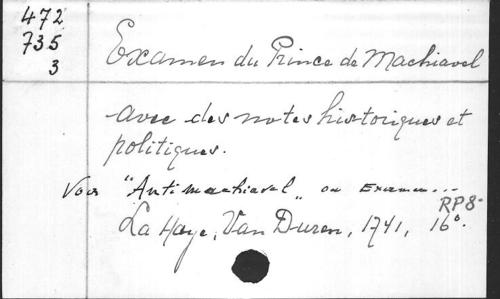 472
735
3
Examen du Prince de Machiavel
avec des notes historiques et
politiques.
Voir "Antimachiavel" ou Examen...
RP8-
La Haye, Van Duren, 1741, 16°.